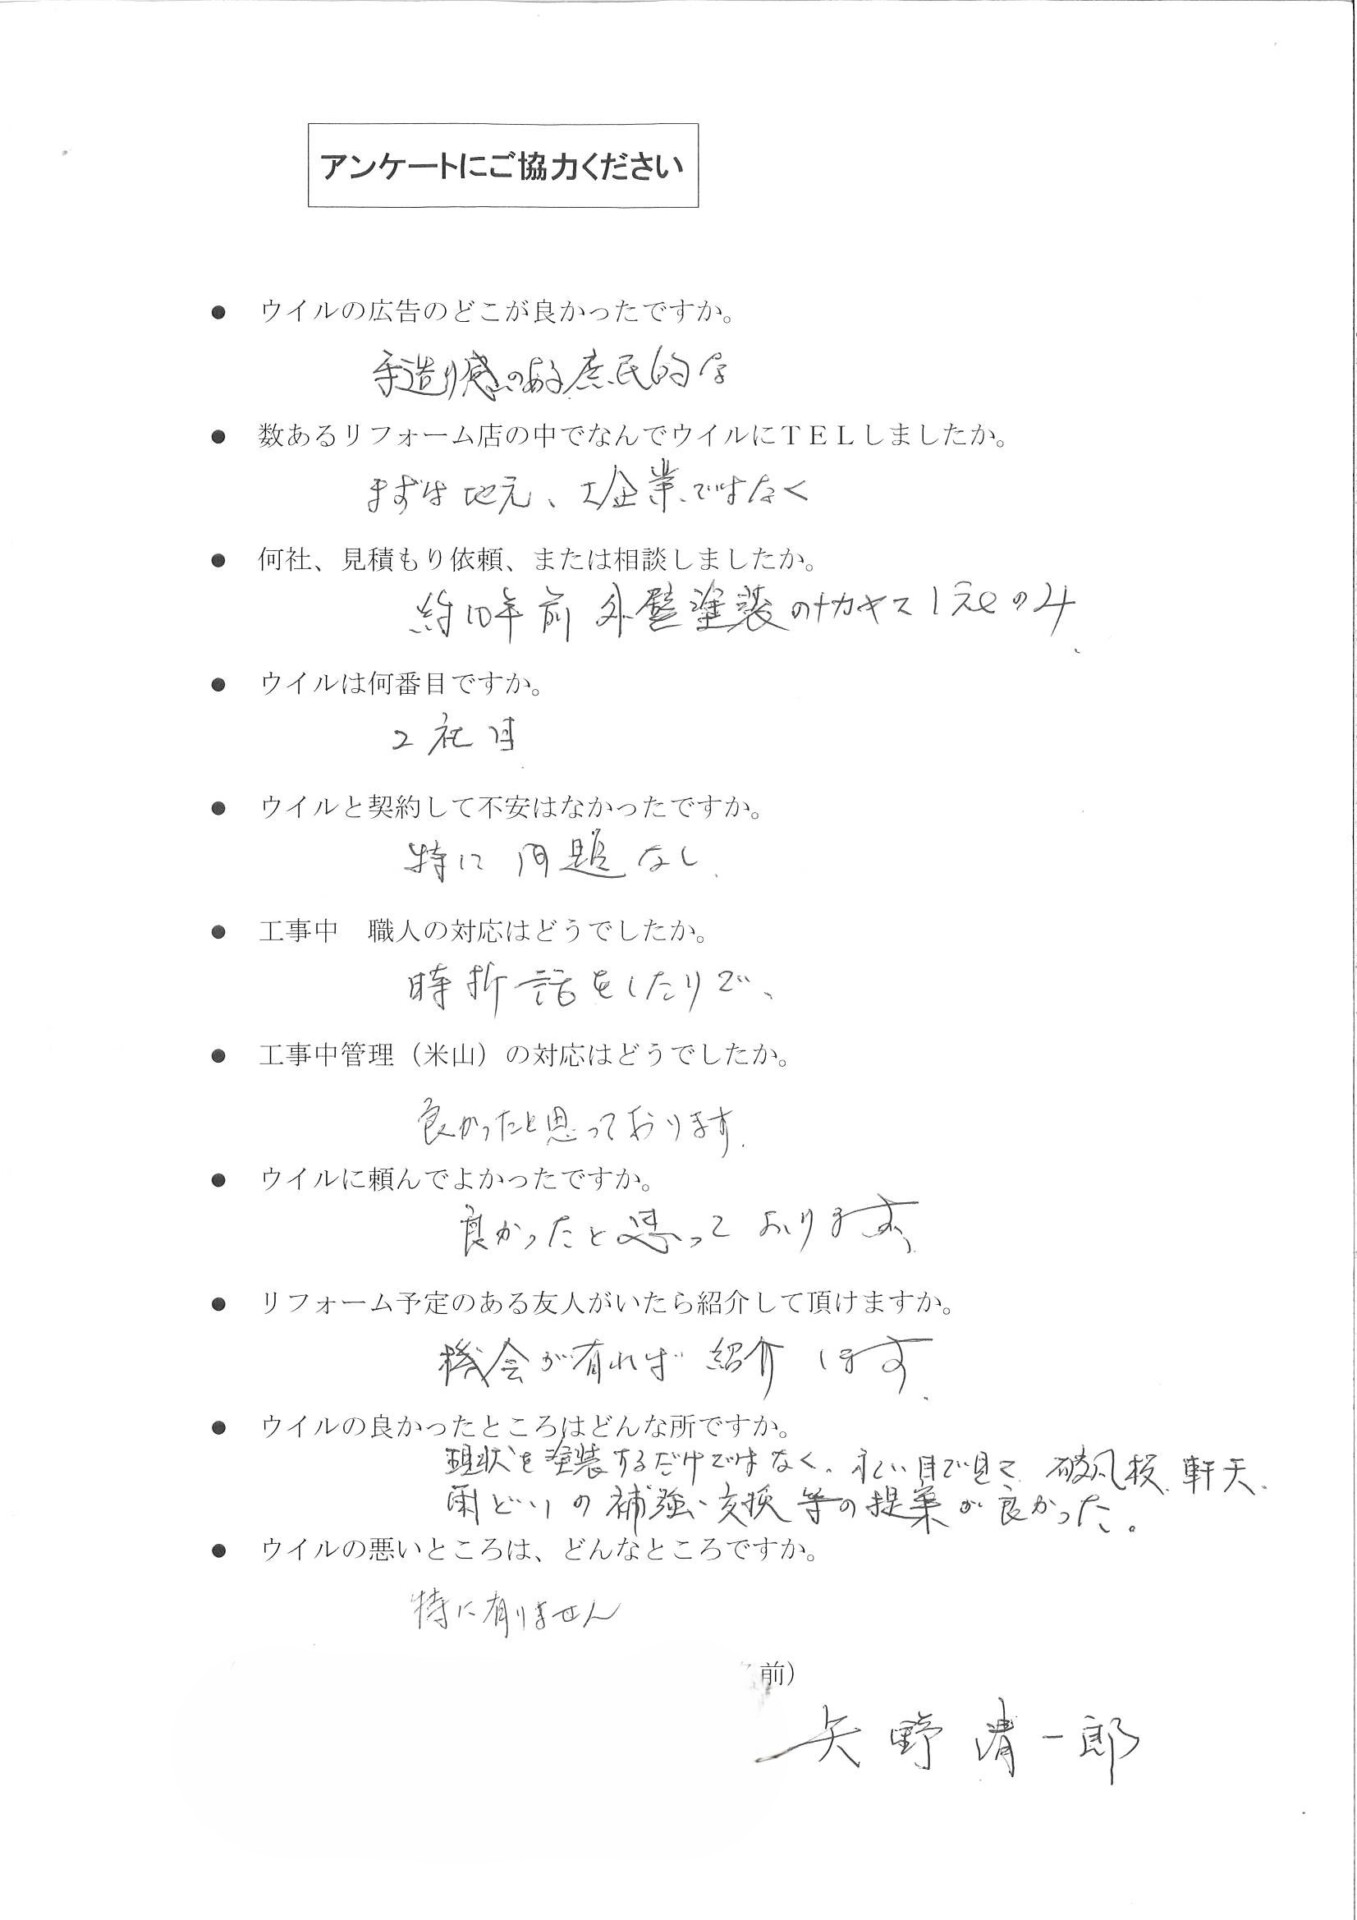 アンケートにご協力ください
● ウイルの広告のどこが良かったですか。
手造り感のある庶民的な
● 数あるリフォーム店の中でなんでウイルにＴＥＬしましたか。
まずは地元、大企業ではなく
● 何社、見積もり依頼、または相談しましたか。
約10年前 外壁塗装のナカヤス1社のみ
● ウイルは何番目ですか。
2社目
● ウイルと契約して不安はなかったですか。
特に問題なし
● 工事中 職人の対応はどうでしたか。
時折話をしたりで、
● 工事中管理（米山）の対応はどうでしたか。
良かったと思っております。
● ウイルに頼んでよかったですか。
良かったと思っております。
● リフォーム予定のある友人がいたら紹介して頂けますか。
機会が有れば紹介します。
● ウイルの良かったところはどんな所ですか。
現状を塗装するだけではなく、永い目で見て 破風板、軒天、
雨どいの補強、交換等の提案が良かった。
● ウイルの悪いところは、どんなところですか。
特に有りません
前）
矢野清一郎